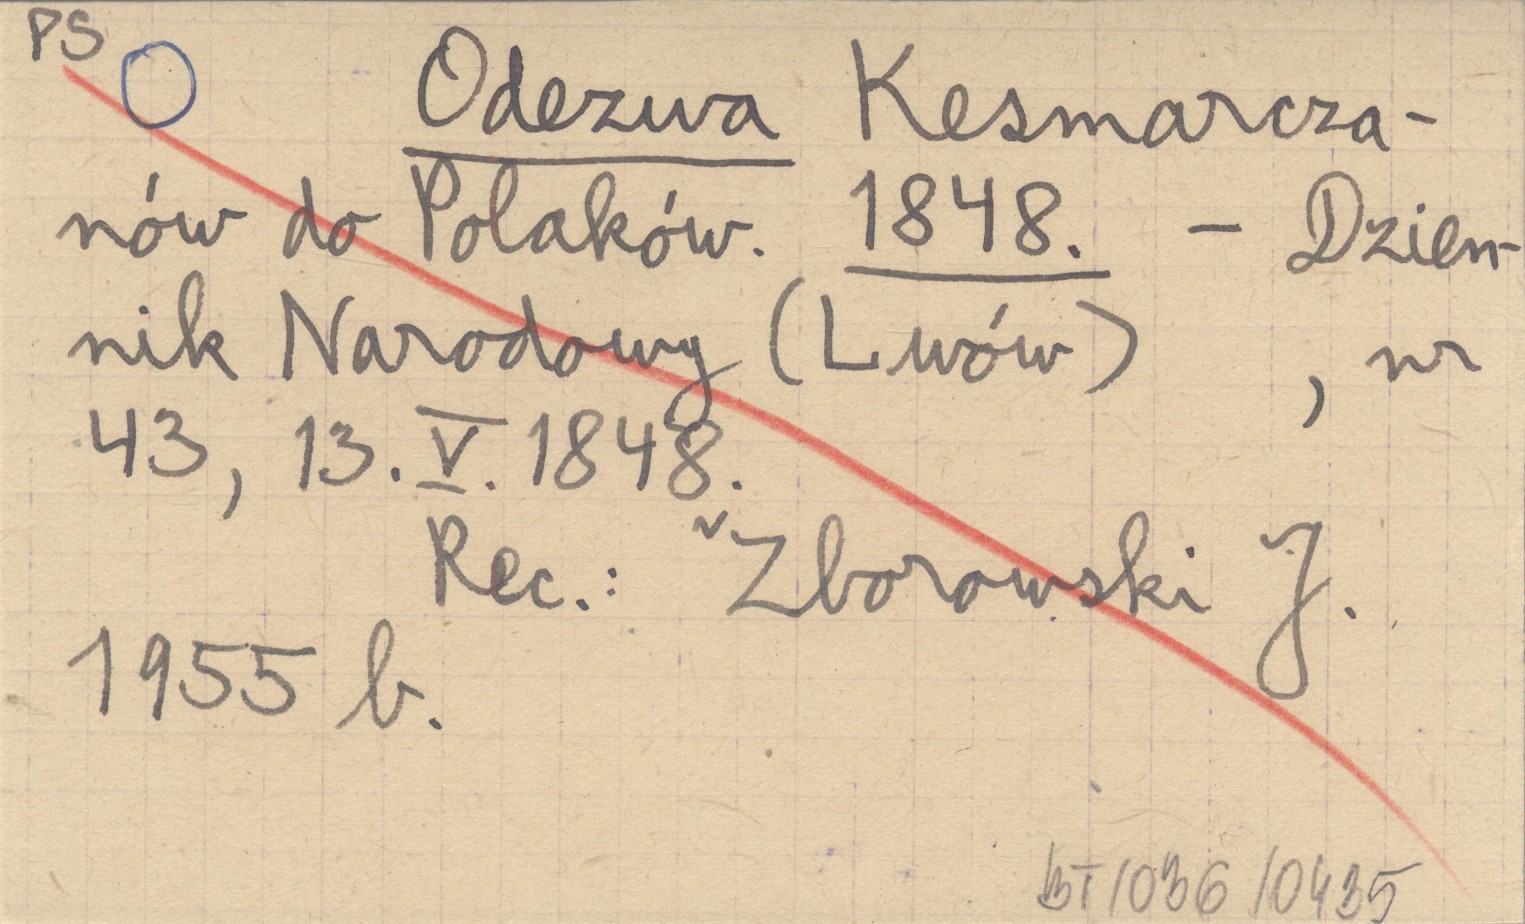 PS
Odezwa Kesmarcza-
nów do Polaków. 1848. – Dzien-
nik Narodowy (Lwów) , nr
43, 13. V. 1848.
Rec.: Zborowski J.
1955 b.
BT/036/0435